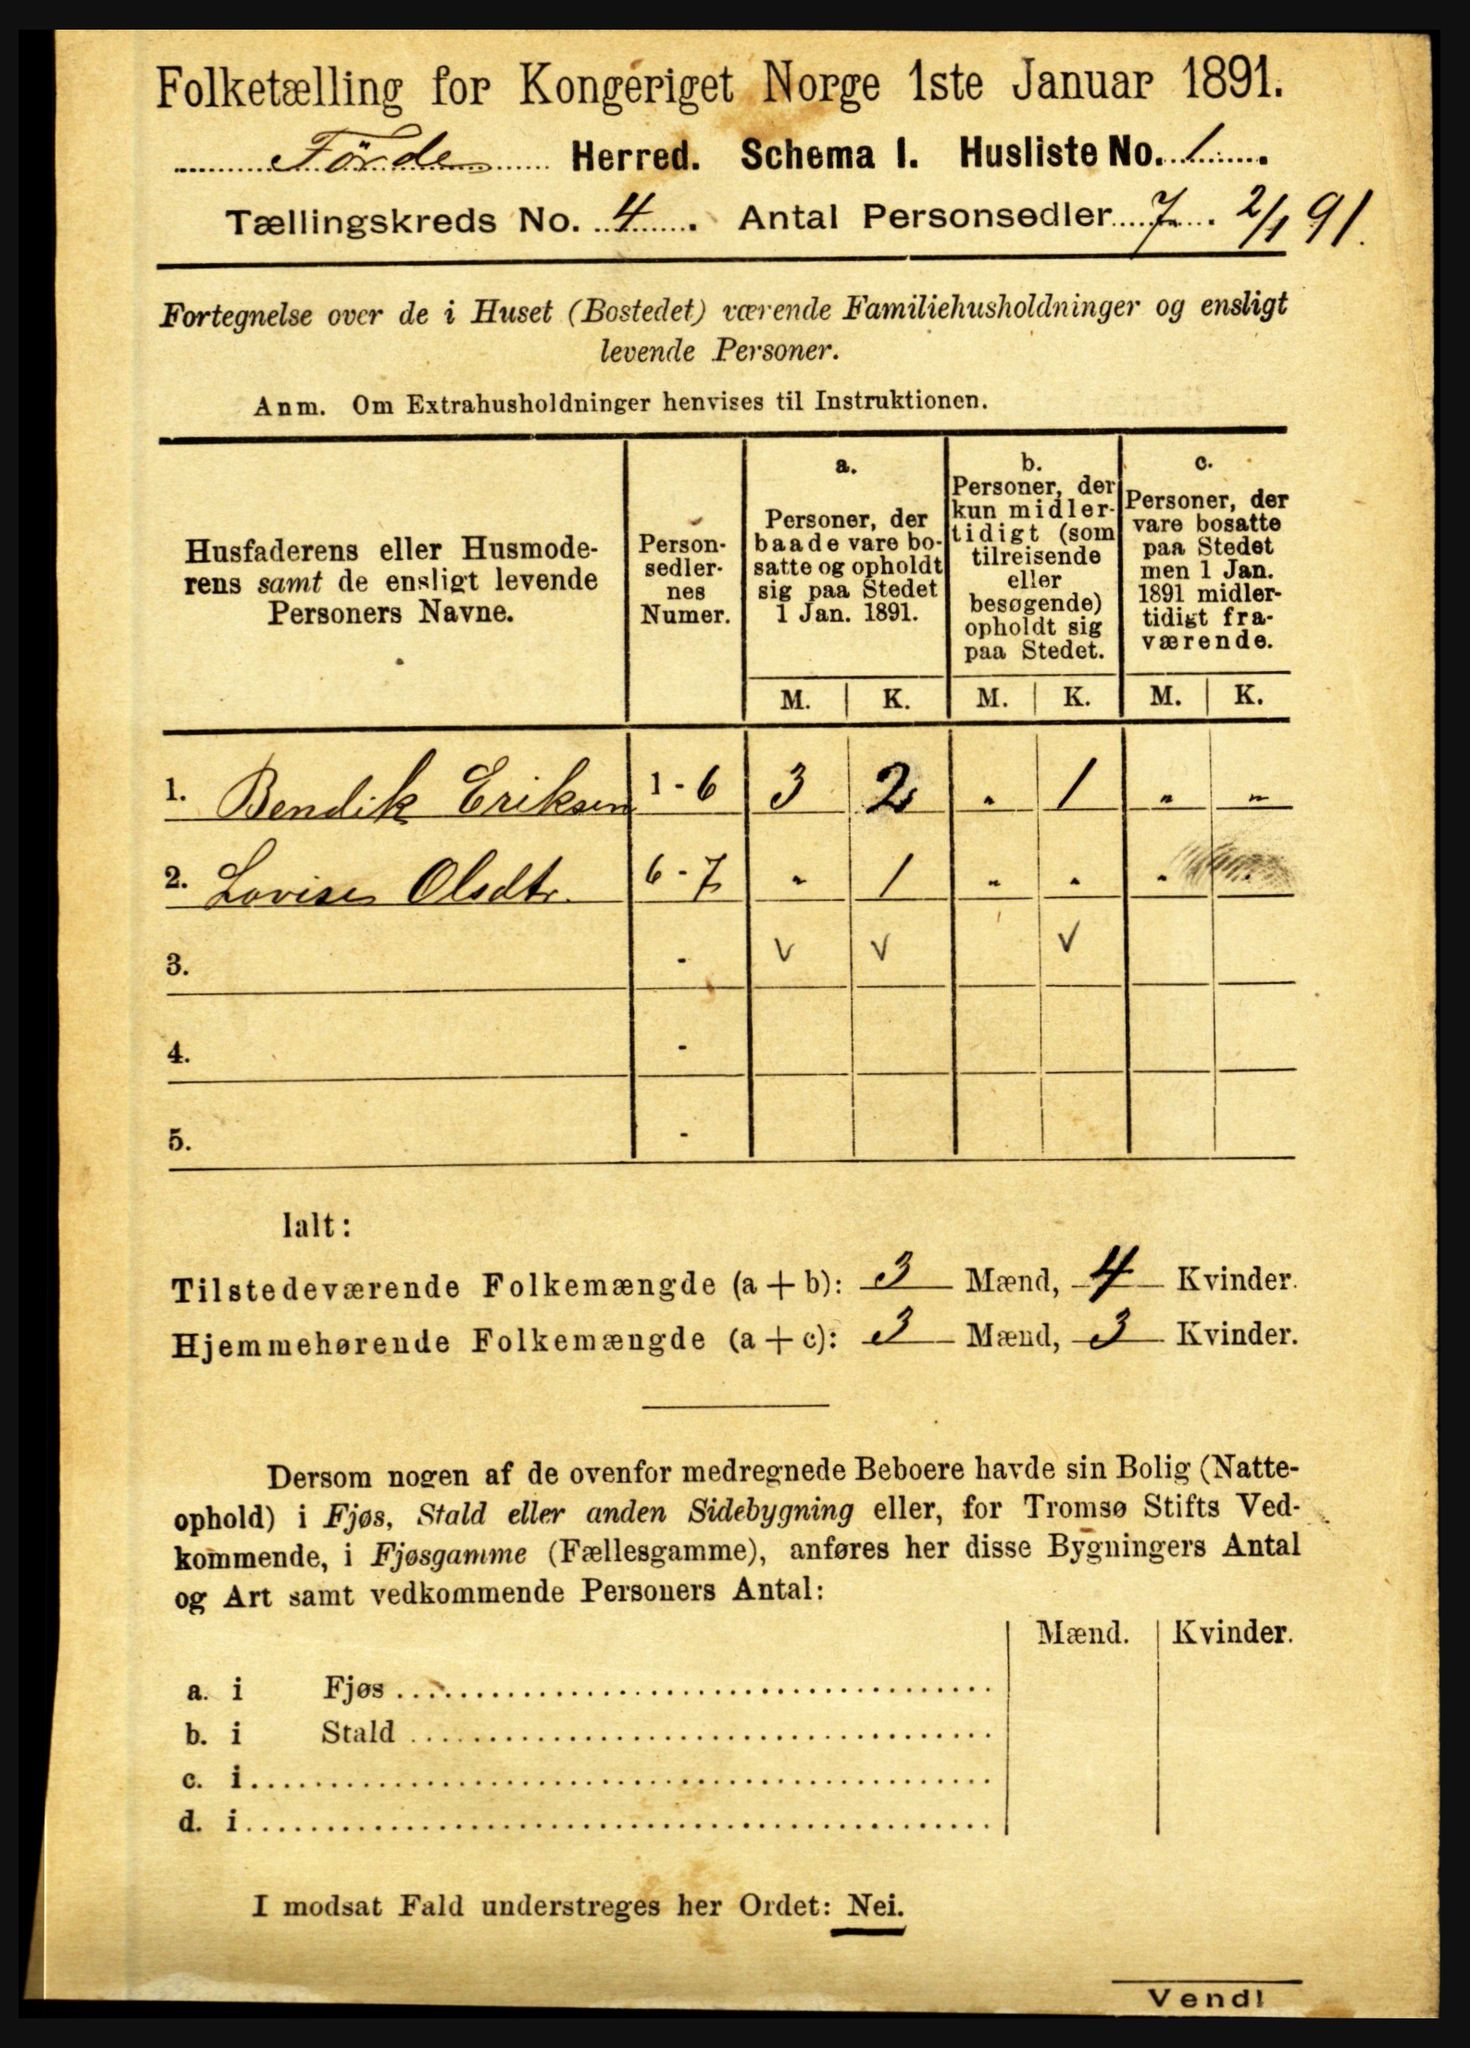 Folketælling for Kongeriget Norge 1ste Januar 1891.
Förde Herred. Schema I. Husliste No. 1.
Tællingskreds No. 4. Antal Personsedler 7. 2/1 91.
Fortegnelse over de i Huset (Bostedet) værende Familiehusholdninger og ensligt
levende Personer.
Anm. Om Extrahusholdninger henvises til Instruktionen.
Husfaderens eller Husmode-
rens samt de ensligt levende
Personers Navne.
Person-
sedler-
nes
Numer.
a.
Personer, der
baade vare bo-
satte og opholdt
sig paa Stedet
1 Jan. 1891.
b.
Personer, der
kun midler-
tidigt (som
tilreisende
eller
besøgende)
opholdt sig
paa Stedet.
c.
Personer, der
vare bosatte
paa Stedet
men 1 Jan.
1891 midler-
tidigt fra-
værende.
M. K. M. K. M. K.
1. Bendik Eriksen 1 - 6 3 2 " 1 " "
2. Lovise Olsdtr. 6 - 7 " 1 " " "
3. - v v v
4. -
5. -
Ialt:
Tilstedeværende Folkemængde (a + b): 3 Mænd, 4 Kvinder.
Hjemmehørende Folkemængde (a + c): 3 Mænd, 3 Kvinder.
Dersom nogen af de ovenfor medregnede Beboere havde sin Bolig (Natte-
ophold) i Fjøs, Stald eller anden Sidebygning eller, for Tromsø Stifts Ved-
kommende, i Fjøsgamme (Fællesgamme), anføres her disse Bygningers Antal
og Art samt vedkommende Personers Antal:
Mænd. Kvinder.
a. i Fjøs
b. i Stald
c. i
d. i
I modsat Fald understreges her Ordet: Nei.
Vend!